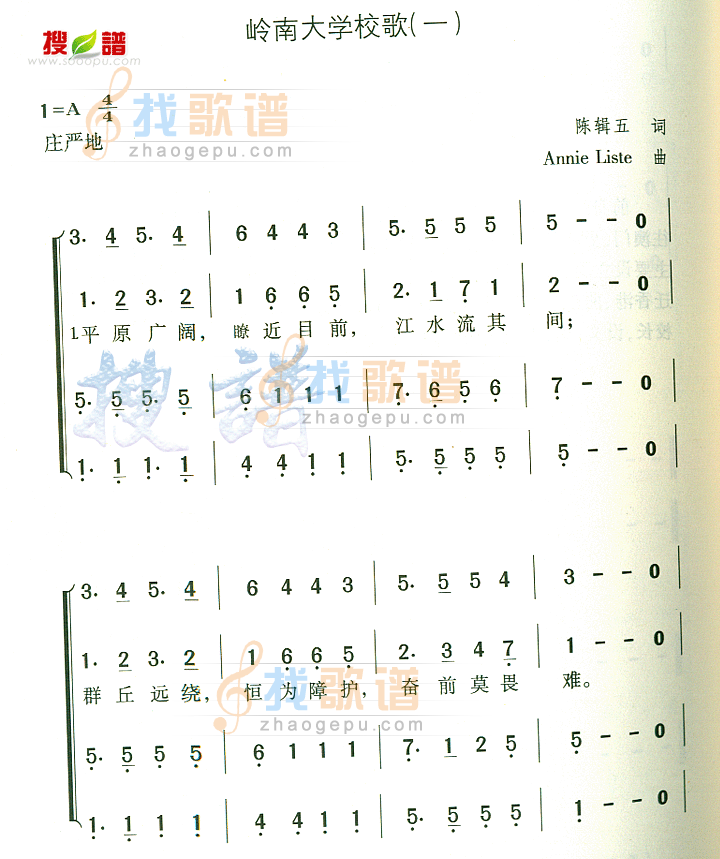 岭南大学校歌(一)
搜谱
www.sooopu.com
1=A 4/4
找歌谱
zhaogepu.com
庄严地
陈辑五 词
Annie Liste 曲
3· 4 5· 4 | 6 4 4 3 | 5· 5 5 5 | 5 - - 0 |
1· 2 3· 2 | 1 6 6 5 | 2· 1 7 1 | 2 - - 0 |
1.平原广阔，瞭近目前，江水流其间；
搜谱
找歌谱
zhaogepu.com
5· 5 5· 5 | 6 1 1 1 | 7· 6 5 6 | 7 - - 0 |
1· 1 1· 1 | 4 4 1 1 | 5· 5 5 5 | 5 - - 0 |
3· 4 5· 4 | 6 4 4 3 | 5· 5 5 4 | 3 - - 0 |
1· 2 3· 2 | 1 6 6 5 | 2· 3 4 7 | 1 - - 0 |
群丘远绕，恒为障护，奋前莫畏难。
找歌谱
zhaogepu.com
5· 5 5 5 | 6 1 1 1 | 7· 1 2 5 | 5 - - 0 |
1· 1 1 1 | 4 4 1 1 | 5· 5 5 5 | 1 - - 0 |